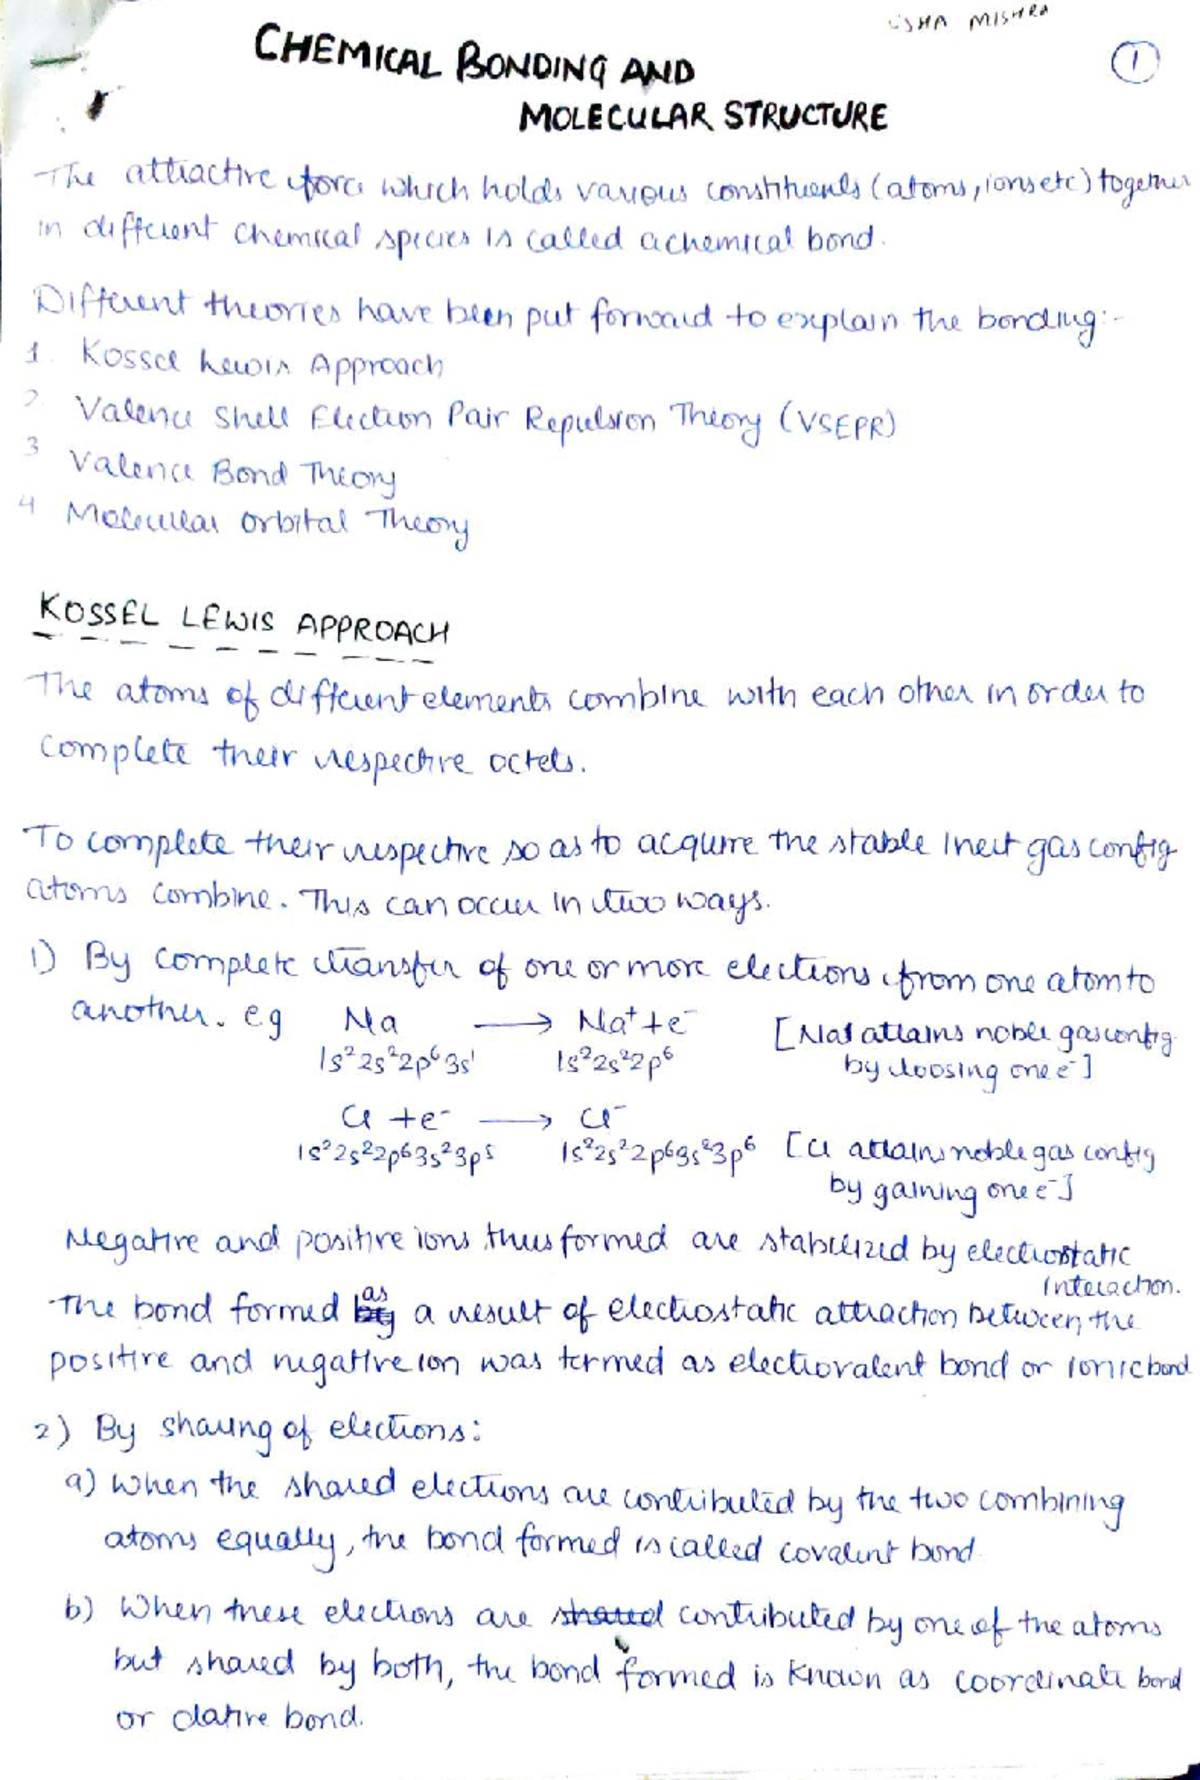 USHA MISHRA
1
CHEMICAL BONDING AND
MOLECULAR STRUCTURE
The attractive force which holds various constituents (atoms, ions etc) together
in different chemical species is called a chemical bond.
Different theories have been put forward to explain the bonding:-
1. Kossel Lewis Approach
2. Valence Shell Electron Pair Repulsion Theory (VSEPR)
3 Valence Bond Theory
4 Molecular Orbital Theory
KOSSEL LEWIS APPROACH
The atoms of different elements combine with each other in order to
complete their respective octets.
To complete their respective so as to acquire the stable inert gas config
atoms combine. This can occur in two ways.
1) By complete transfer of one or more electrons from one atom to
another. e.g Na ⟶ Na⁺ + e⁻ [Na attains noble gas config
1s²2s²2p⁶3s¹ 1s²2s²2p⁶ by loosing one e⁻]
Cl + e⁻ ⟶ Cl⁻
1s²2s²2p⁶3s²3p⁵ 1s²2s²2p⁶3s²3p⁶ [Cl attains noble gas config
by gaining one e⁻]
Negative and positive ions thus formed are stabilized by electrostatic
interaction.
The bond formed as a result of electrostatic attraction between the
positive and negative ion was termed as electrovalent bond or ionic bond
2) By sharing of electrons:
a) When the shared electrons are contributed by the two combining
atoms equally, the bond formed is called covalent bond
b) When these electrons are shared contributed by one of the atoms
but shared by both, the bond formed is known as coordinate bond
or dative bond.